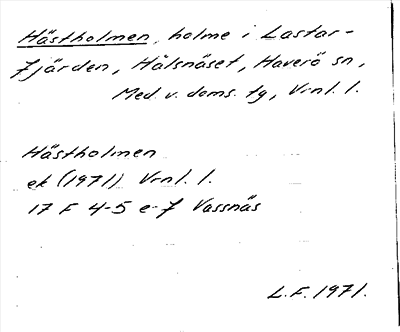 Hästholmen, holme i Lastar-
fjärden, Hålsnäset, Haverö sn,
Med. v. doms. tg, Vrnl. l.
Hästholmen
ek (1971) Vrnl. l.
17 F 4-5 e-f Vassnäs
L.F. 1971.